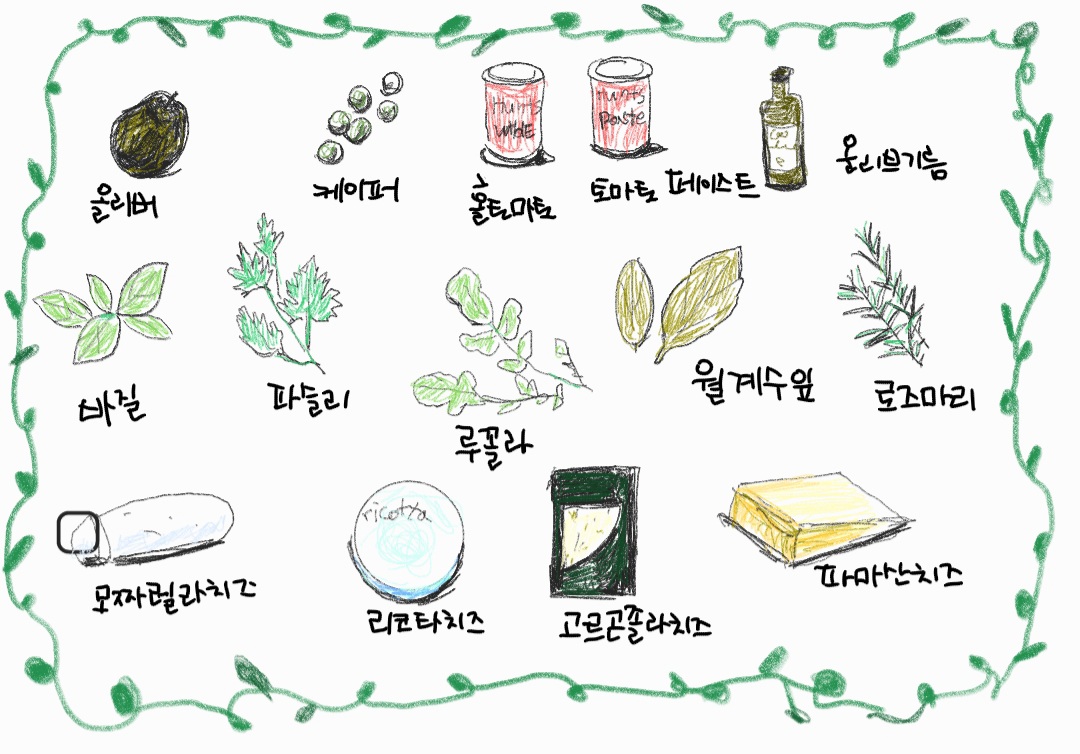 Hunts
Whole
Hunts
Paste
올리버
케이퍼
홀토마토
토마토 페이스트
올리브기름
바질
파슬리
루꼴라
월계수잎
로즈마리
ricotta
모짜렐라치즈
리코타치즈
고르곤졸라치즈
파마산치즈